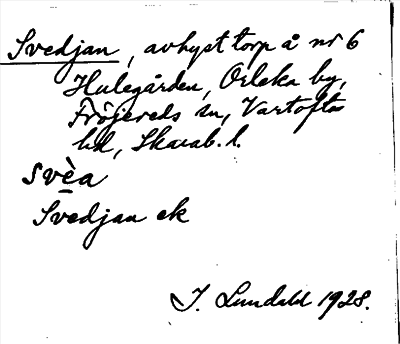 Svedjan, avhyst torp å nr 6
Hulegården, Orleka by,
Fröjereds sn, Vartofta
hd, Skarab. l.
svèa
Svedjan ek
J. Lundahl 1928.